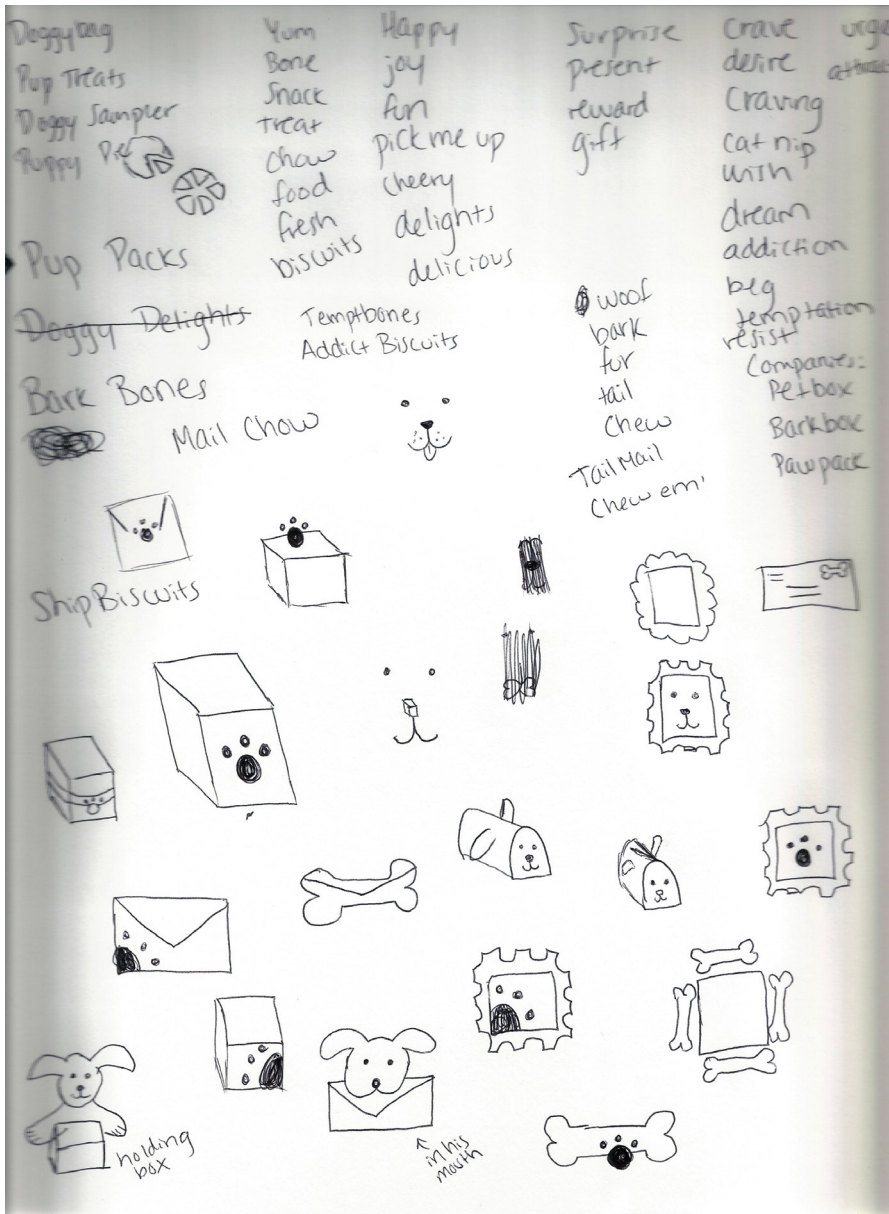 Doggybag
Pup Treats
Doggy Sampler
Puppy Pie
Pup Packs
Doggy Delights
Bark Bones
Yum
Bone
Snack
treat
chow
food
fresh
biscuits
Happy
joy
fun
pick me up
cheery
delights
delicious
Temptbones
Addict Biscuits
Mail Chow
Surprise
present
reward
gift
woof
bark
fur
tail
Chew
Tail Mail
Chew em'
Crave
desire
Craving
cat nip
wish
dream
addiction
beg
temptation
resist
Companies:
Petbox
Barkbox
Pawpack
urge
Ship Biscuits
holding
box
in his
mouth